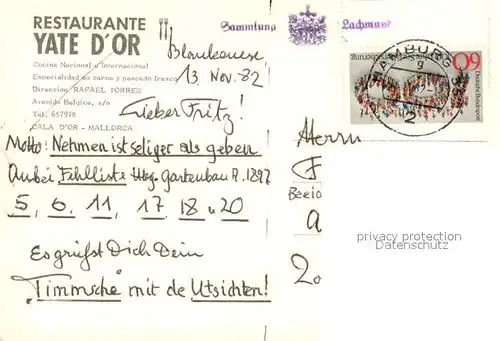 RESTAURANTE
YATE D'OR
Cocina Nacional e Internacional
Especialidad en carne y pescado fresco
Direccion RAFAEL TORRES
Avenida Belgica, s/n
Tel. 657978
CALA D'OR - MALLORCA
Sammlung Lachmund
Blankenese,
13 Nov. 82
Lieber Fritz!
Motto: Nehmen ist seliger als geben
Anbei Fehlliste Hbg. Gartenbau A. 1897
5, 6, 11, 17 18 u 20
Es grüßt Dich Dein
"Timmsche" mit de Utsichten!
HAMBURG
2
60
Deutsche Bundespost
Herrn
F
a
20
privacy protection
Datenschutz